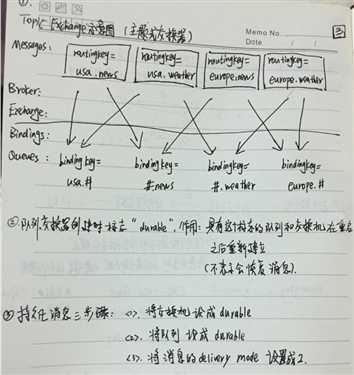 ①
Topic Exchange示意图 (主题式交换器)
Memo No.
Date / /
3
Messages: routingkey= usa.news routingkey= usa.weather routingkey= europe.news routingkey= europe.weather
Broker:
Exchange:
Bindings:
Queues: bindingkey= usa.# bindingkey= #.news bindingkey= #.weather bindingkey= europe.#
②队列.交换器创建时标志"durable". 作用: 具有这个标志的队列和交换机在重启
之后重新建立
(不会恢复消息).
③持久化消息三步骤: <1>. 将交换机设成durable
<2>. 将队列设成durable
<3>. 将消息的delivery mode 设置成2.